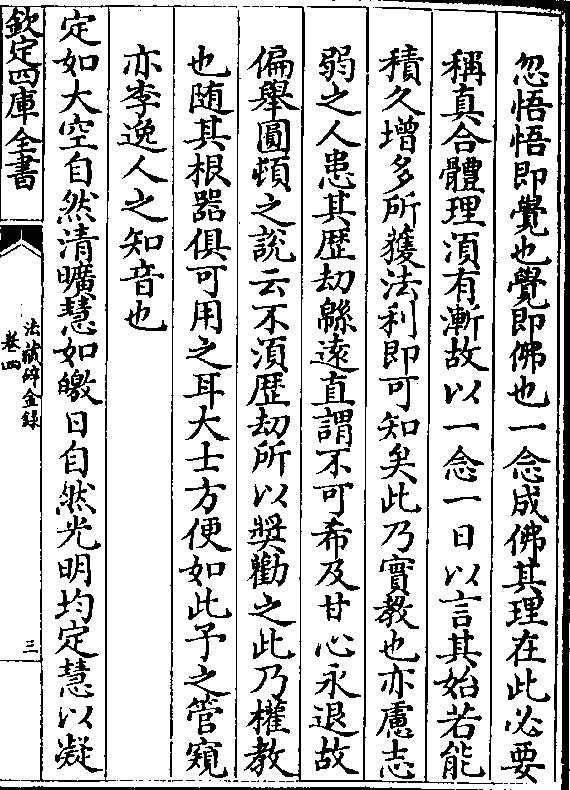 忽悟悟即覺也覺即佛也一念成佛其理在此必要
稱真合體理須有漸故以一念一日以言其始若能
積久增多所獲法利即可知矣此乃實教也亦慮志
弱之人患其歴劫緜遠直謂不可希及甘心永退故
偏舉圓頓之說云不須歴劫所以奬勸之此乃權教
也随其根器俱可用之耳大士方便如此予之管窺
亦李逸人之知音也
定如大空自然清曠慧如皦日自然光明均定慧以凝
欽定四庫全書
法藏碎金録
卷四
三